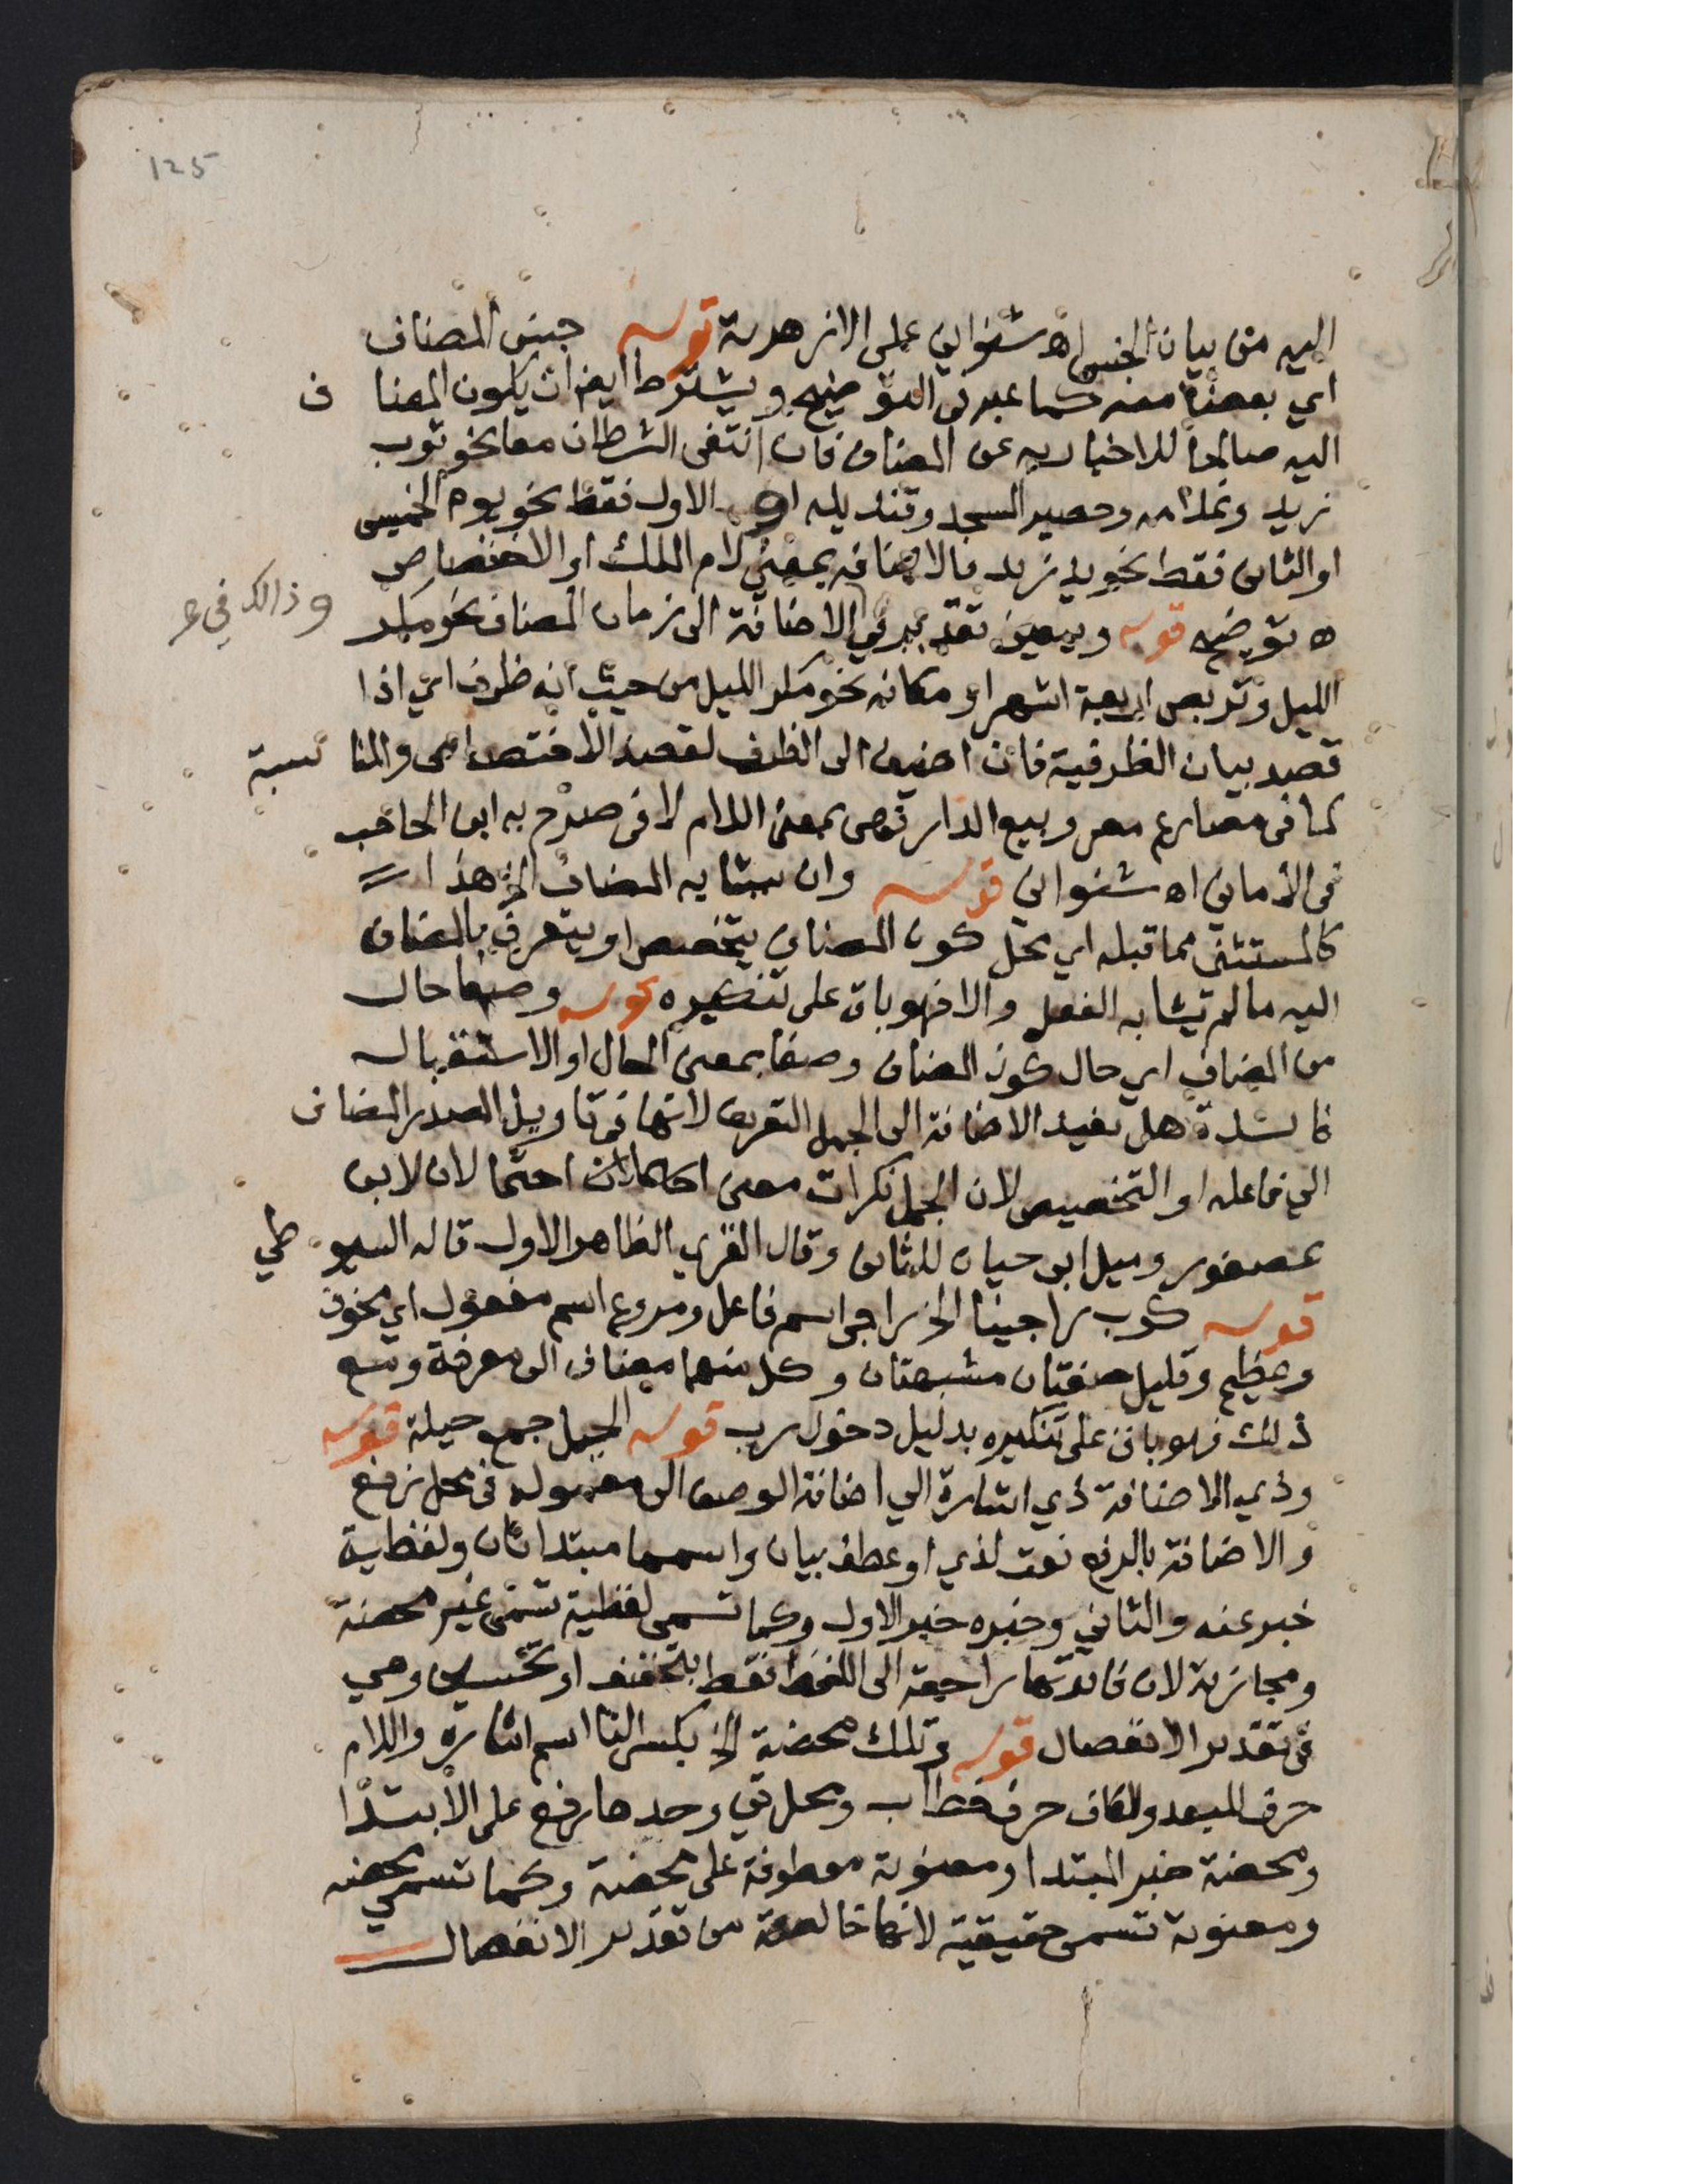 125
اليه من بيان الجنس اه شنواني على الازهرية قوله جنس المضاف
اي بعضه منه كما عبر في التوضيح ويشترط ايضا ان يكون المضاف
اليه صالحا للاخبار به عن المضاف فان انتفى الشرطان معا نحو ثوب
زيد وغلامه وحصير المسجد وقنديله او الاول فقط نحو يوم الخميس
او الثاني فقط نحو يد زيد فالاضافه بمعنى لام الملك او الاختصاص
اه توضيح قوله ويعين تقدير في الاضافة الى زمان المضاف نحو مكر
وذالك في
الليل وتربص اربعة اشهر او مكانه نحو مكر الليل من حيث انه ظرف اي اذا
قصد بيان الظرفية فان اضيف الى الظرف لقصد الاختصاص والمناسبة
كما في مصارع مصر وبيع الدار فهي بمعنى اللام لا في صرح به ابن الحاجب
في الأمالي اه شنواني قوله وان يشابه المضاف الخ هذا
كالمستثنى مما قبله اي محل كون المضاف يتخصص او يتعرف بالمضاف
اليه ما لم يشابه الفعل والا فهو باق على تنكيره قوله وصفا حال
من المضاف اي حال كون المضاف وصفا بمعنى الحال او الاستقبال
فائدة هل تفيد الاضافة الى الجمل التعريف لانها في تاويل المصدر المضاف
الي فاعله او التخصيص لان الجمل نكرات معنى احتمالان لابن
عصفور وميل ابي حيان للثاني وقال الظاهر الاول قاله السيوطي
قوله كرب راجينا الخ راجي اسم فاعل ومروع اسم مفعول اي مخوف
وعظيم وقليل صفتان مشبهتان وكل منهما مضاف الى معرفة ومع
ذلك فهو باق على تنكيره بدليل دخول رب قوله الحيل جمع حيلة قوله
وذي الاضافة ذي اشارة الي اضافة الوصف الى معموله في محل رفع
والاضافة بالرفع نعت لذي او عطف بيان واسمها مبتدا ثان ولفظية
خبر عنه والثاني وخبره خبر الاول وكما تسمى لفظية تسمى غير محضة
ومجازية لان فائدتها راجعة الى اللفظ فقط بتخفيف او تحسين وهي
في تقدير الانفصال قوله وتلك محضة الخ بكسر التا اسم اشاره واللام
حرف للبعد والكاف حرف خطاب ومحل تي وحدها رفع على الابتدا
ومحضة خبر المبتدا ومعنوية معطوفة على محضة وكما تسمى محضه
ومعنوية تسمى حقيقية لانها خالصة من تقدير الانفصال